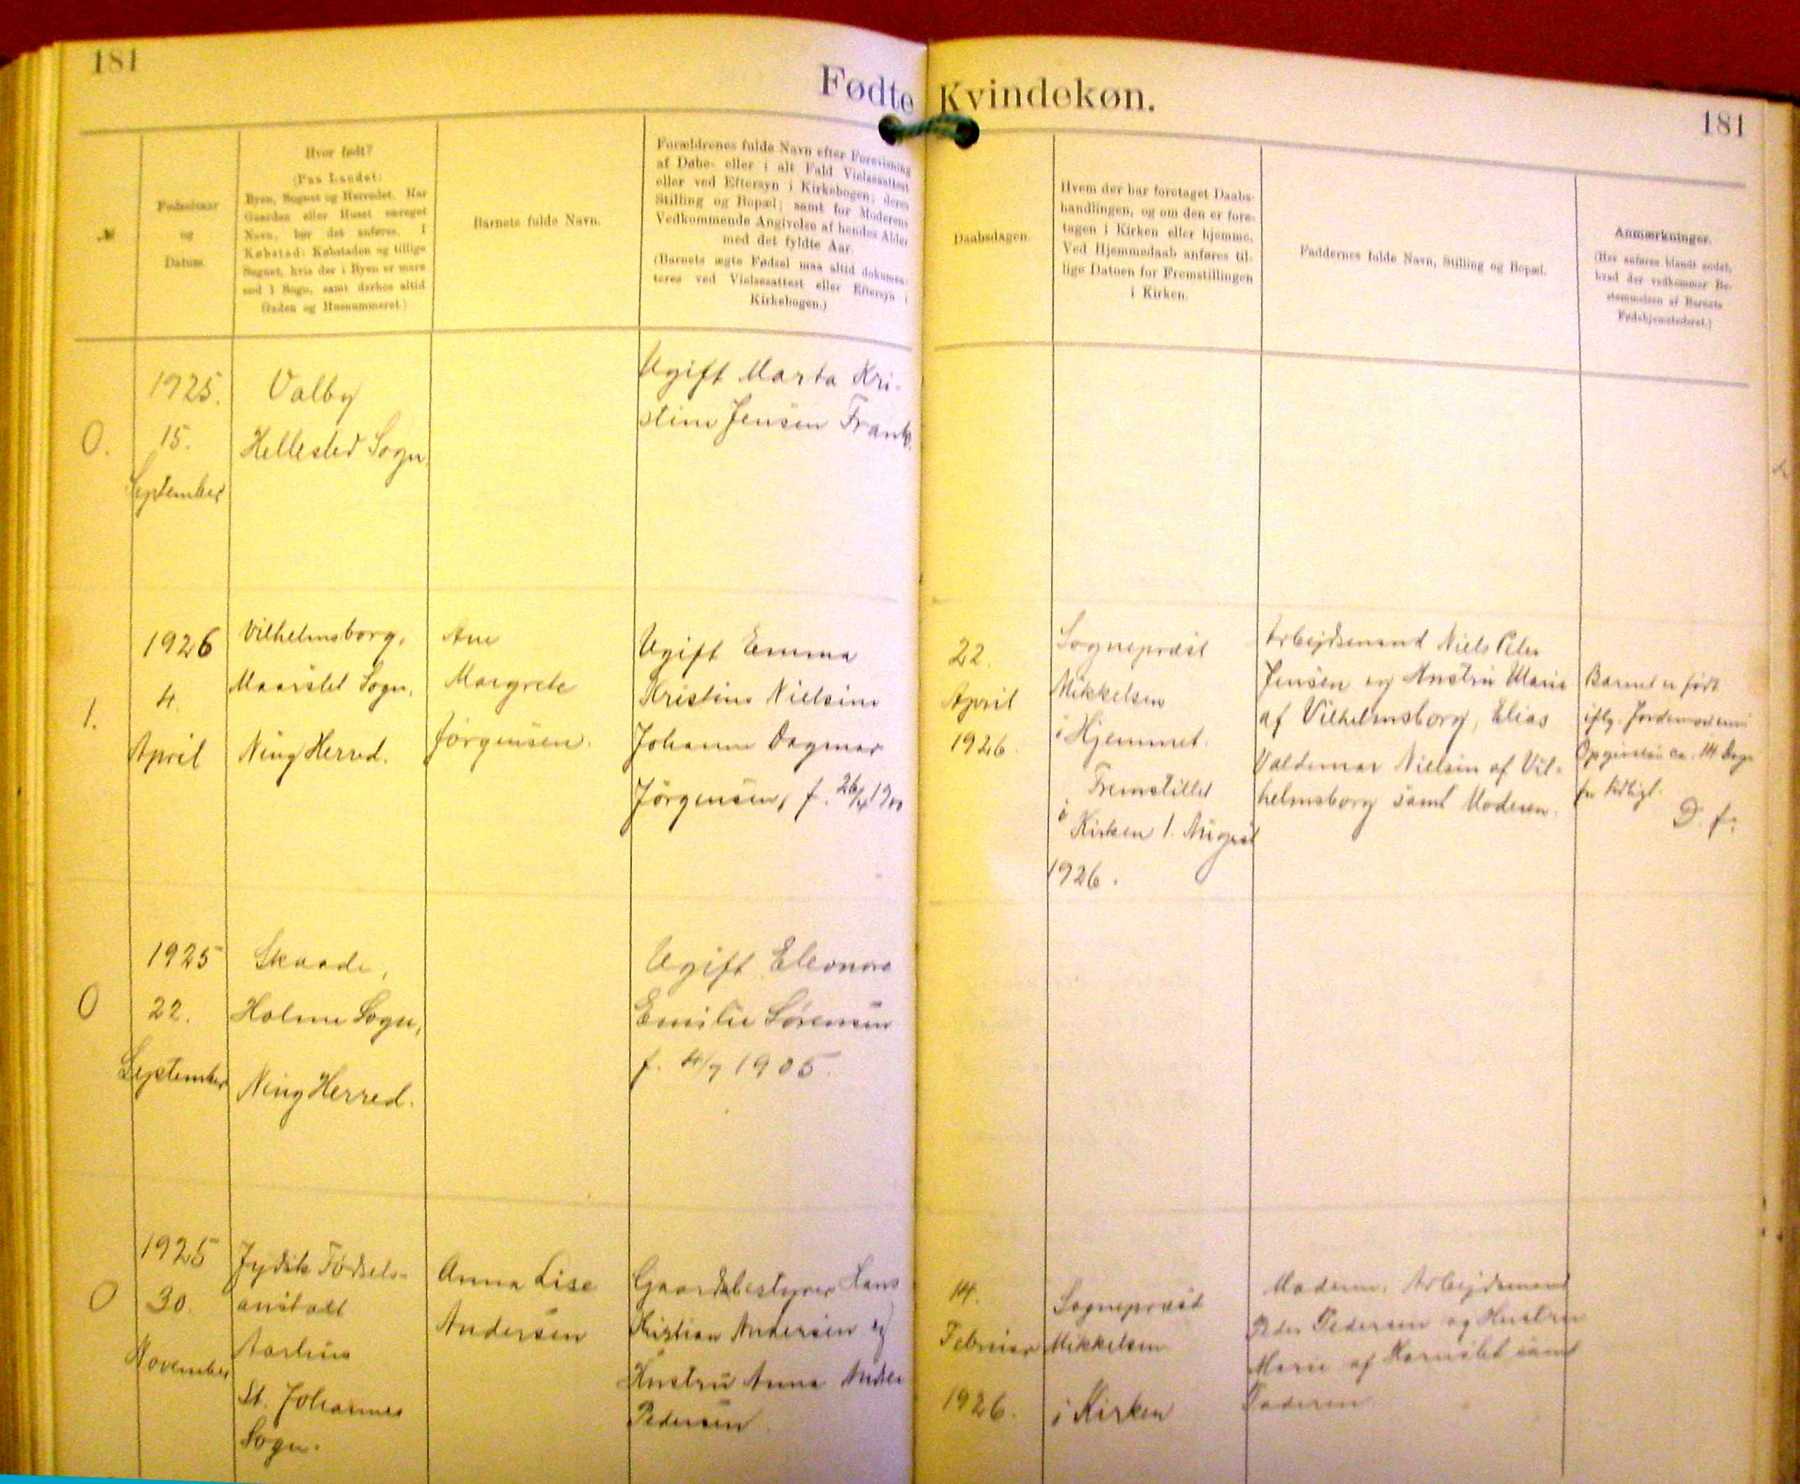 181
Fødte Kvindekøn.
181
№
Fødselsaar
og
Datum.
Hvor født?
(Paa Landet:
Byen, Sognet og Herredet. Har
Gaarden eller Huset særeget
Navn, bør det anføres. I
Købstad: Købstaden og tillige
Sognet, hvis der i Byen er mere
end 1 Sogn, samt derhos altid
Gaden og Husnummeret.)
Barnets fulde Navn.
Forældrenes fulde Navn efter Forevisning
af Døbe- eller i alt Fald Vielsesattest
eller ved Eftersyn i Kirkebogen; deres
Stilling og Bopæl; samt for Moderens
Vedkommende Angivelse af hendes Alder
med det fyldte Aar.
(Barnets ægte Fødsel maa altid dokumen-
teres ved Vielsesattest eller Eftersyn i
Kirkebogen.)
Daabsdagen.
Hvem der har foretaget Daabs-
handlingen, og om den er fore-
tagen i Kirken eller hjemme.
Ved Hjemmedaab anføres til-
lige Datoen for Fremstillingen
i Kirken.
Faddernes fulde Navn, Stilling og Bopæl.
Anmærkninger.
(Her anføres blandt andet,
hvad der vedkommer Be-
stemmelsen af Barnets
Fødehjemstederet.)
0.
1925.
15.
September
Valby
Hellested Sogn.
Ugift Marta Kri-
stine Jensen Frank.
1.
1926
4.
April
Vilhelmsborg,
Maarslet Sogn,
Ning Herred.
Ane
Margrete
Jørgensen.
Ugift Emma
Kristine Nielsine
Johanne Dagmar
Jörgensen, f. 26/4 1900
22.
April
1926.
Sognepræst
Mikkelsen
i Hjemmet.
Fremstillet
i Kirken 1. August
1926.
Arbejdsmand Niels Peter
Jensen og Hustru Marie
af Vilhelmsborg, Elias
Valdemar Nielsen af Vil-
helmsborg samt Moderen.
Barnet er født
iflg. Jordemoderens
Opgivelse ca. 14 Dage
for tidligt.
D. f.
0
1925
22.
September
Skaade,
Holme Sogn,
Ning Herred.
Ugift Eleonora
Emilie Sørensen
f. 4/7 1905.
0
1925
30.
November
Jydsk Fødsels-
anstalt
Aarhus
St. Johannes
Sogn.
Anna Lise
Andersen
Gaardbestyrer Hans
Kristian Andersen og
Hustru Anna
Pedersen
14.
Februar
1926.
Sognepræst
Mikkelsen
i Kirken
Moderen, Arbejdsmand
Peder Pedersen og Hustru
Marie af samt
Faderen